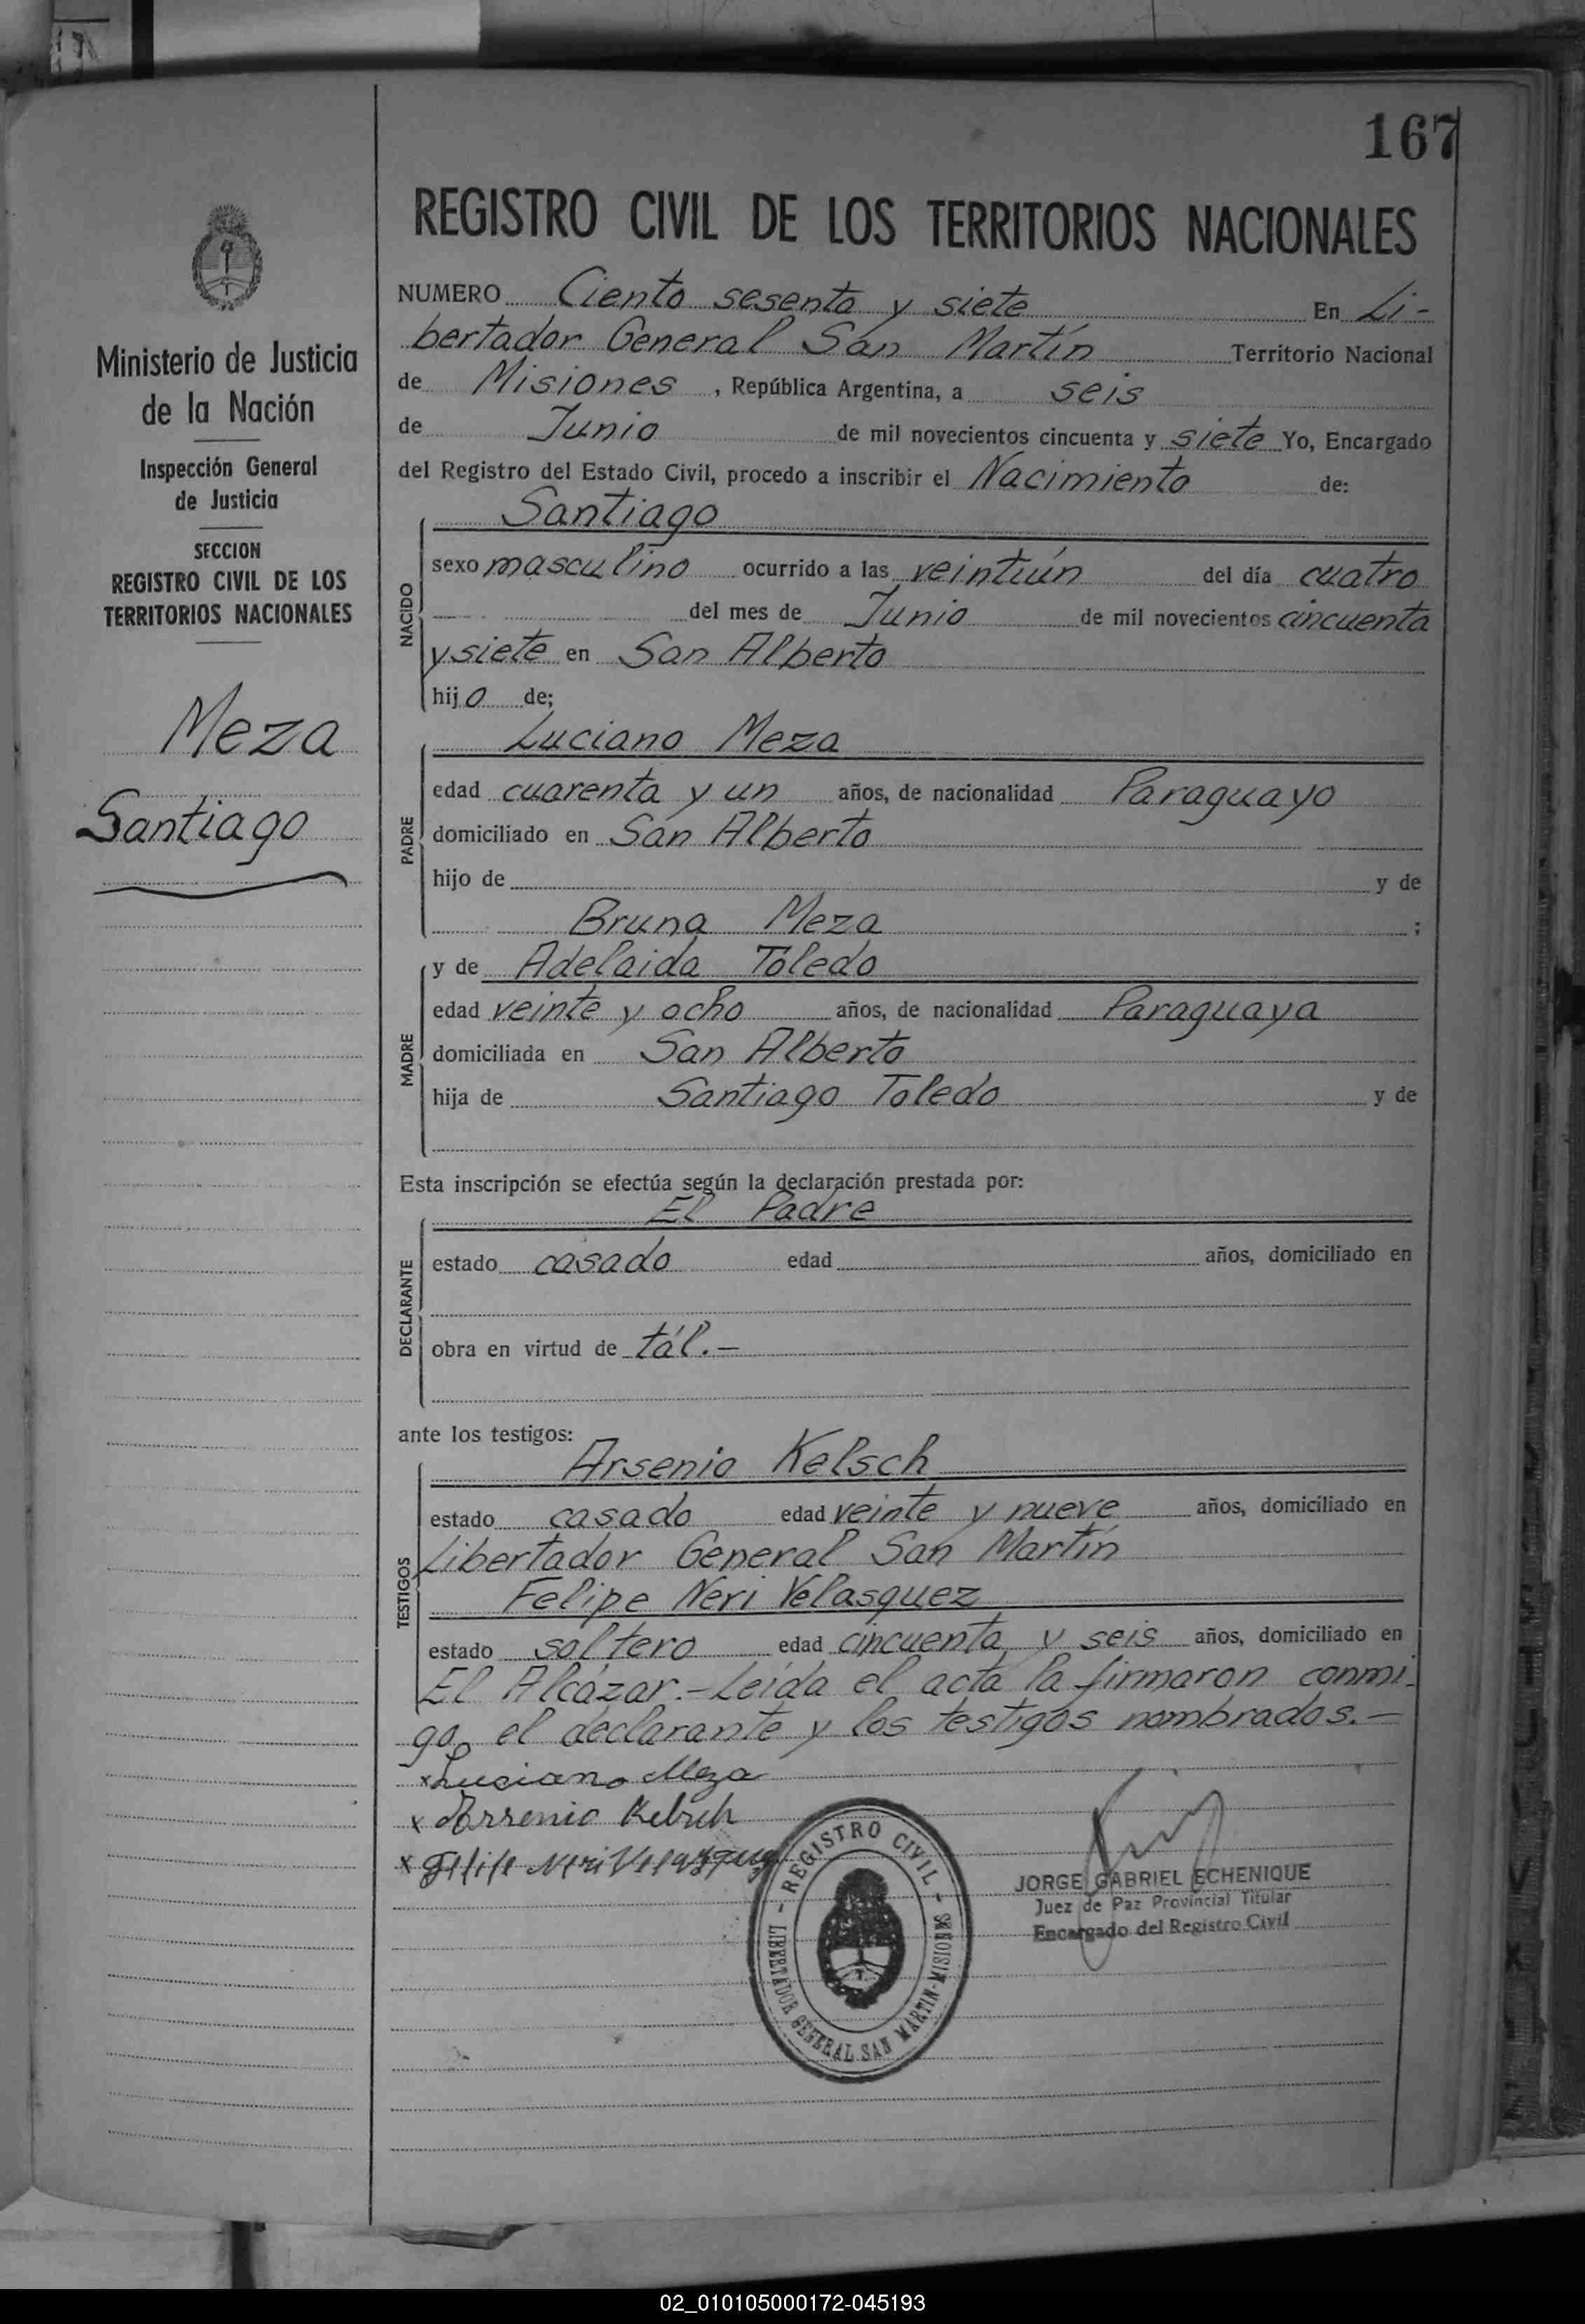 167
REGISTRO CIVIL DE LOS TERRITORIOS NACIONALES
NUMERO Ciento sesenta y siete En Li-
bertador General San Martín Territorio Nacional
de Misiones, República Argentina, a seis
de Junio de mil novecientos cincuenta y siete Yo, Encargado
del Registro del Estado Civil, procedo a inscribir el Nacimiento de:
Ministerio de Justicia
de la Nación
Inspección General
de Justicia
SECCION
REGISTRO CIVIL DE LOS
TERRITORIOS NACIONALES
Meza
Santiago
NACIDO
Santiago
sexo masculino ocurrido a las veintiún del día cuatro
del mes de Junio de mil novecientos cincuenta
y siete en San Alberto
hijo de;
PADRE
Luciano Meza
edad cuarenta y un años, de nacionalidad Paraguayo
domiciliado en San Alberto
hijo de y de
Bruna Meza ;
MADRE
y de Adelaida Toledo
edad veinte y ocho años, de nacionalidad Paraguaya
domiciliada en San Alberto
hija de Santiago Toledo y de
Esta inscripción se efectúa según la declaración prestada por:
DECLARANTE
El Padre
estado casado edad años, domiciliado en
obra en virtud de tál.-
ante los testigos:
TESTIGOS
Arsenio Kelsch
estado casado edad veinte y nueve años, domiciliado en
Libertador General San Martín
Felipe Neri Velasquez
estado soltero edad cincuenta y seis años, domiciliado en
El Alcázar.- Leída el acta la firmaron conmi-
go, el declarante y los testigos nombrados.-
x Luciano Meza
x Arsenio Kelsch
x Felipe Neri Velazquez
REGISTRO CIVIL - MISIONES - LIBERTADOR GENERAL SAN MARTIN
JORGE GABRIEL ECHENIQUE
Juez de Paz Provincial Titular
Encargado del Registro Civil
02_010105000172-045193